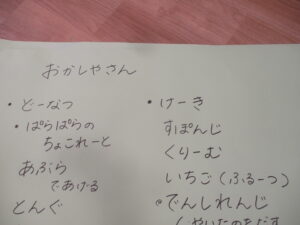 おかしやさん
・どーなつ
・ぱらぱらの
ちょこれーと
あぶら
であげる
とんぐ
・けーき
すぽんじ
くりーむ
いちご(ふるーつ)
でんしれんじ